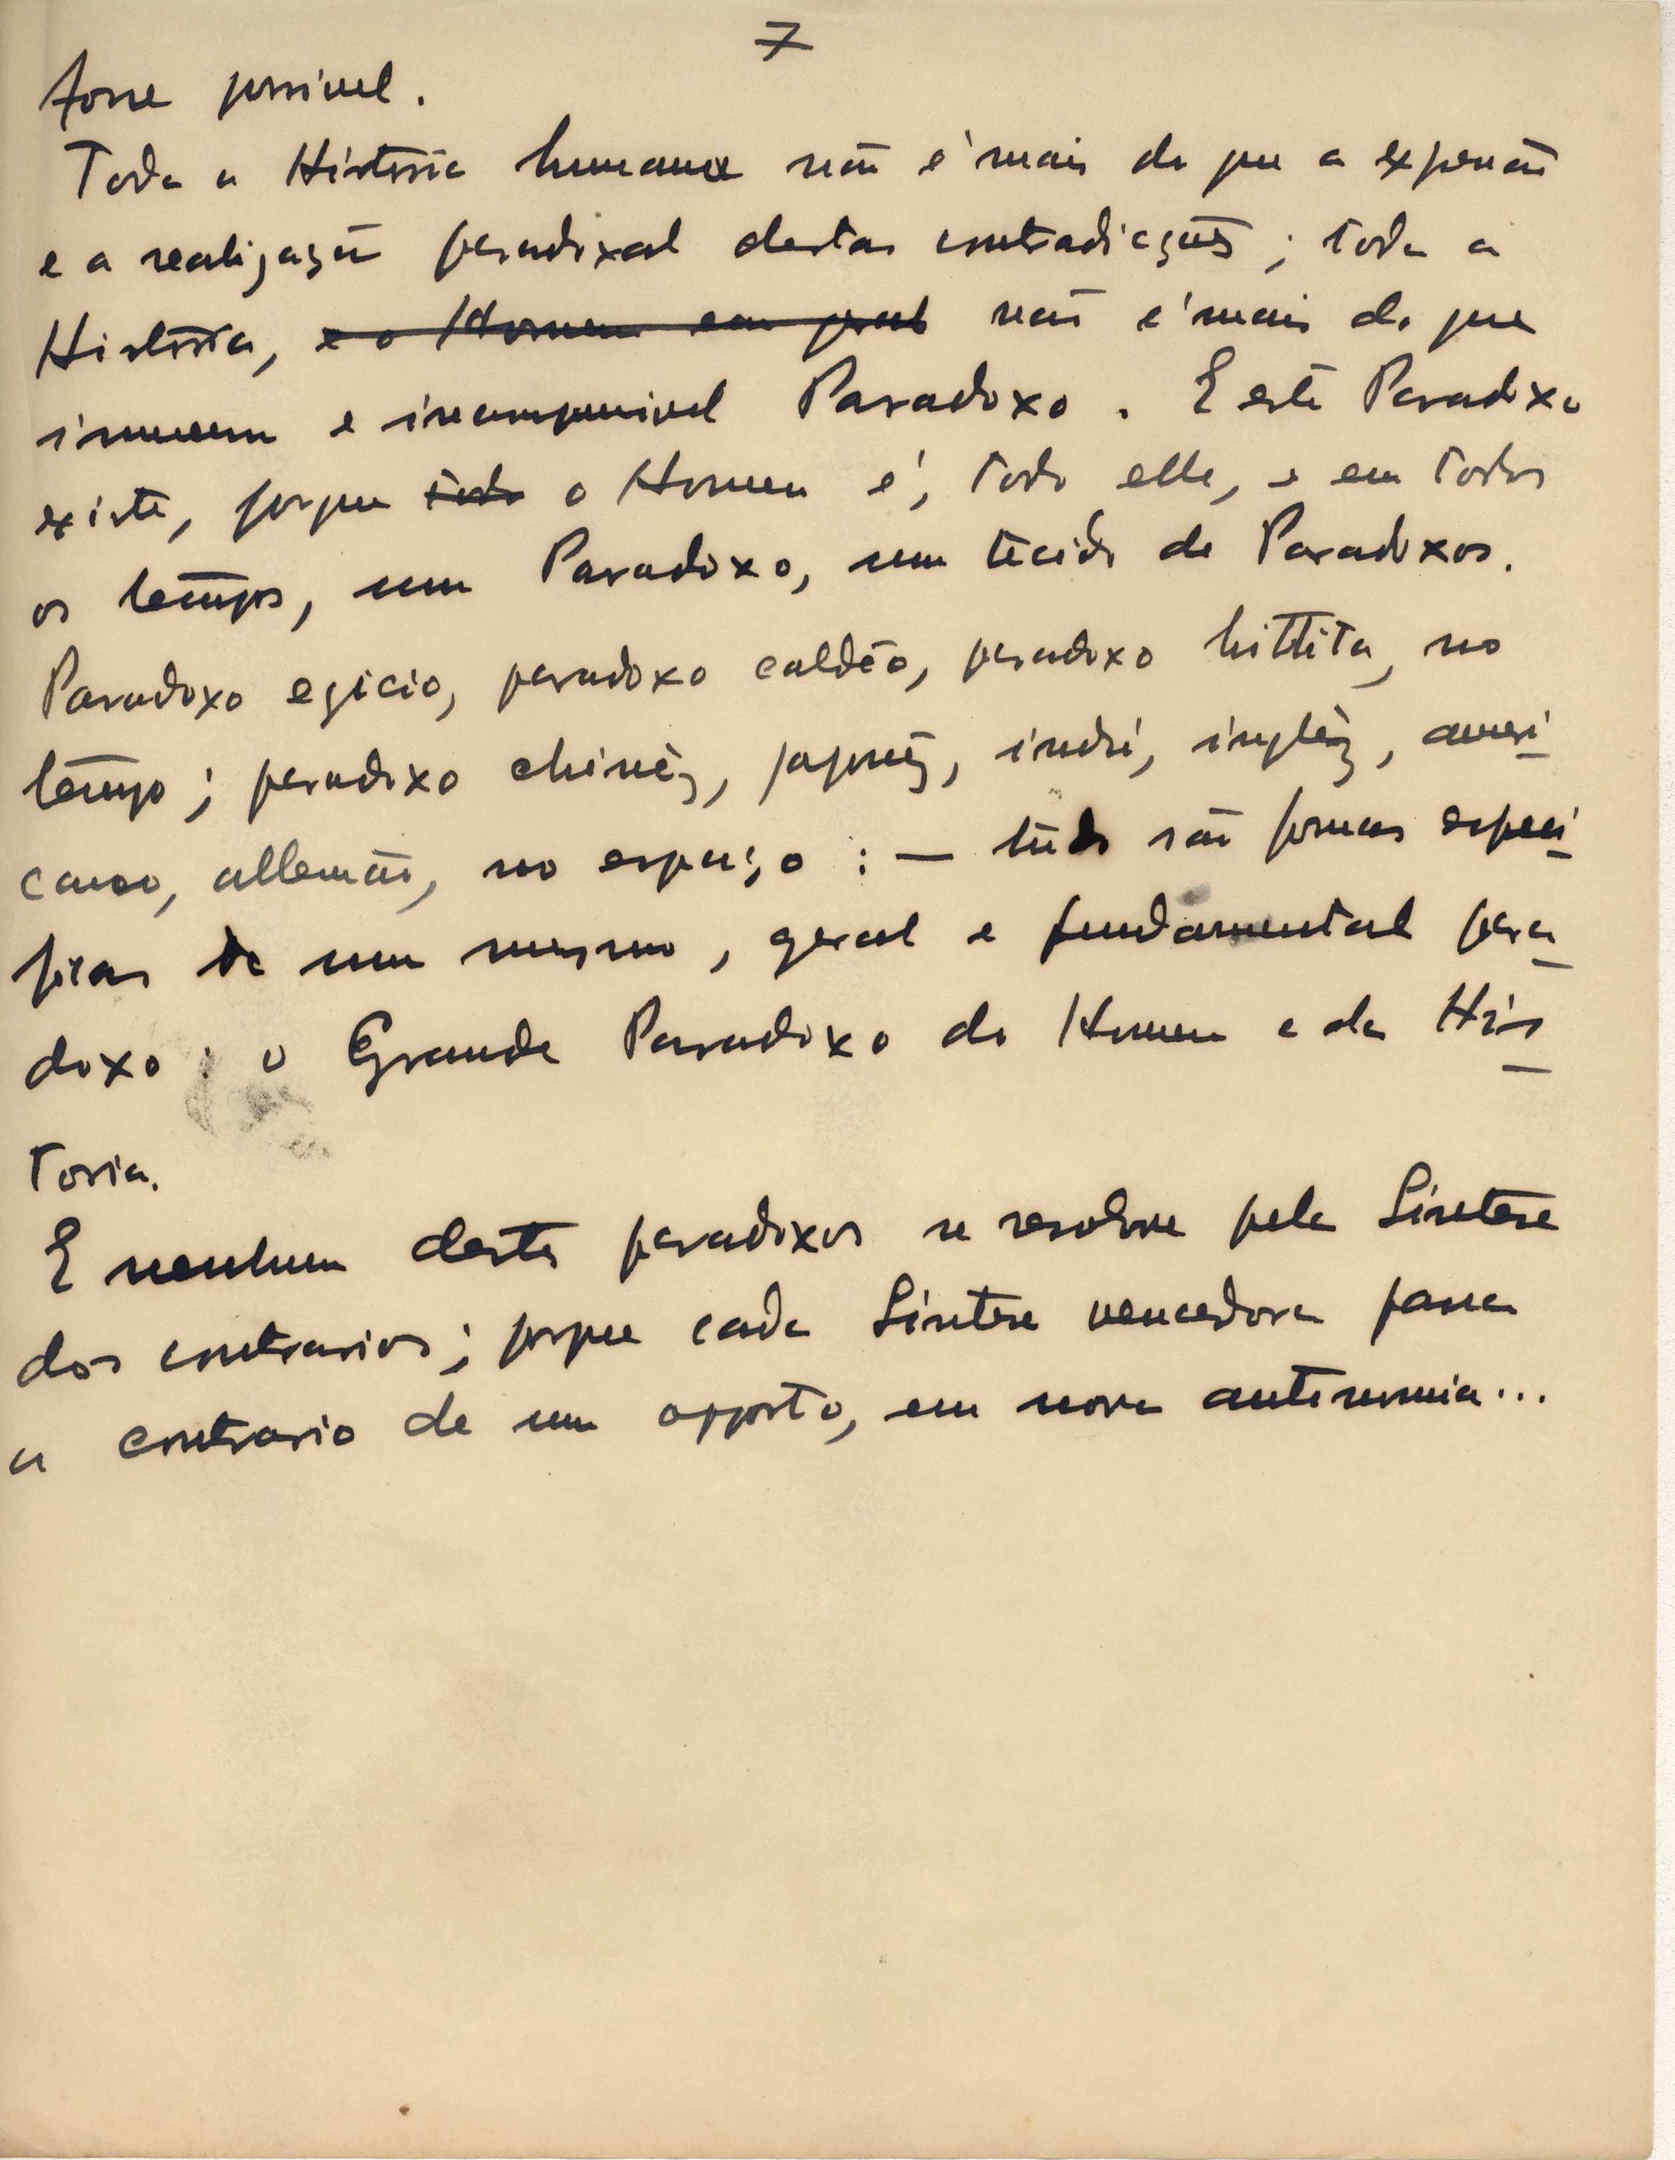 7
fosse possivel.
Toda a Historia humana não é mais do que a expressão
e a realização paradoxal destas contradicções; toda a
Historia, e o Homem em geral não é mais do que
immenso e incomparavel Paradoxo. E este Paradoxo
existe, porque todo o Homem é, todo elle, e em todos
os tempos, um Paradoxo, um tecido de Paradoxos.
Paradoxo egicio, paradoxo caldéo, paradoxo hittita, no
tempo; paradoxo chinêz, japonêz, indú, inglêz, ameri
cano, allemão, no espaço: — tudo são formas especi
ficas de um mesmo, geral e fundamental para
doxo: o Grande Paradoxo do Homem e da His
toria.
E nenhum destes paradoxos se resolve pela Sintese
dos contrarios; porque cada Sintese vencedora passa
a contrario de um opposto, em nova antinomia...